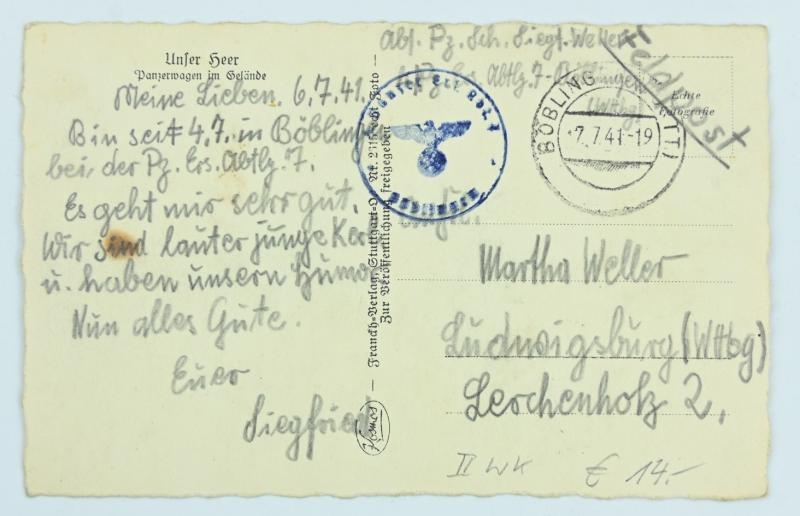 Unser Heer
Panzerwagen im Gelände
Meine Lieben. 6.7.41.
Bin seit 4.7. in Böblingen
bei der Pz. Ers. Abtlg. 7.
Es geht mir sehr gut.
Wir sind lauter junge Kerle
u. haben unsern Humor.
Nun alles Gute.
Euer
Siegfried
Franckh-Verlag, Stuttgart-O
Zur Veröffentlichung freigegeben
Kosmos
Abs. Pz. Sch. Siegf. Weller
Pz. Ers. Abtlg. 7 Böblingen
(Wttbg)
Feldpost
Echte
Fotografie
BÖBLINGEN
7.7.41-19
Martha Weller
Ludwigsburg (Wttbg)
Lerchenholz 2.
II WK € 14.-